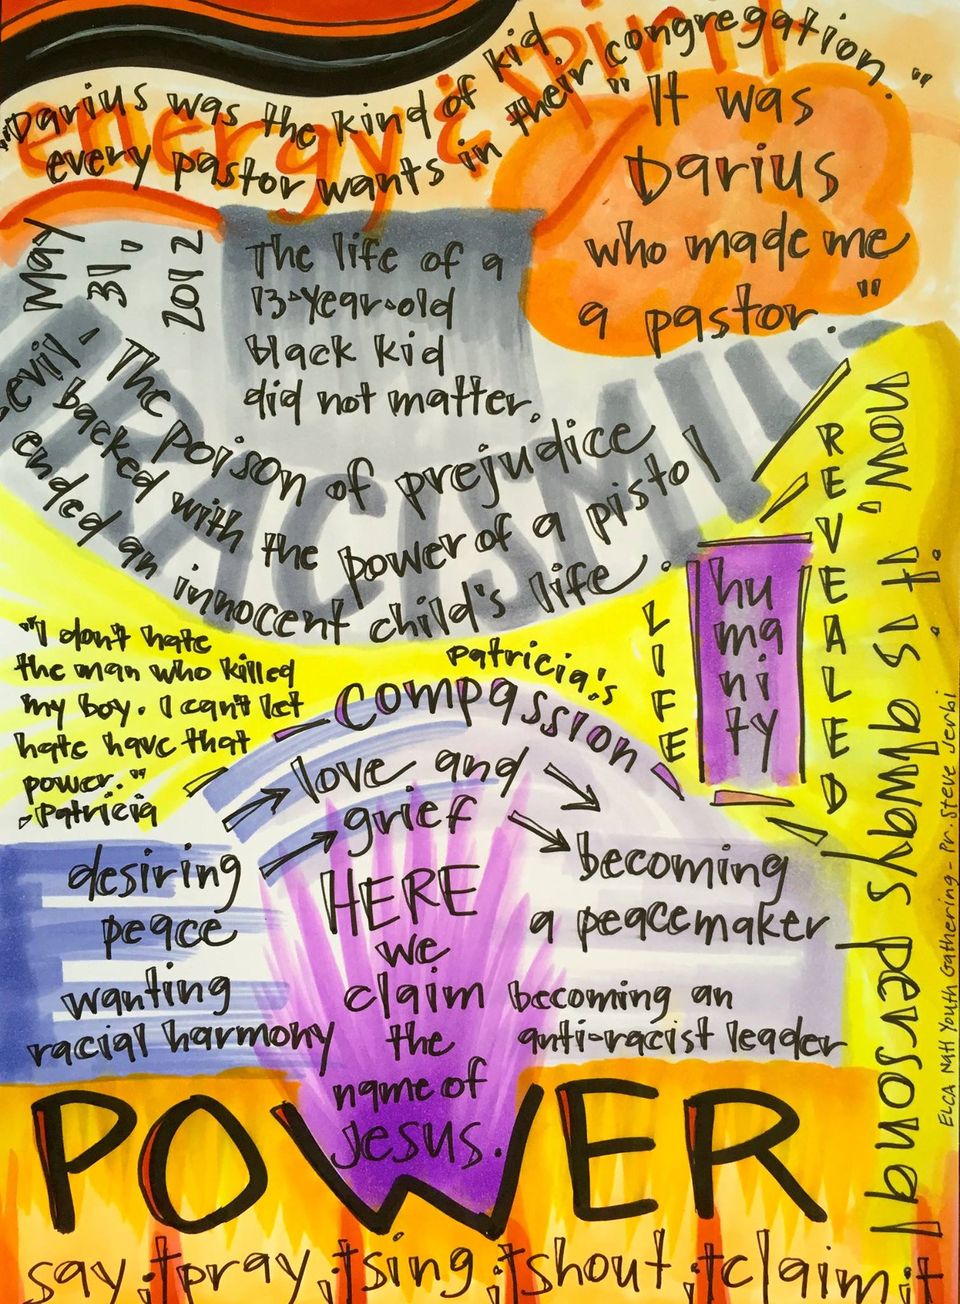 energy & spirit
"Darius was the kind of kid
every pastor wants in their congregation."
"It was
Darius
who made me
a pastor."
May
31,
2012
The life of a
13-year-old
black kid
did not matter.
RACISM
evil - The poison of prejudice
backed with the power of a pistol
ended an innocent child's life.
"I don't hate
the man who killed
my boy. I can't let
hate have that
power."
-Patricia
Patricia's
compassion
love and
grief
desiring
peace
wanting
racial harmony
becoming
a peacemaker
becoming an
anti-racist leader
HERE
we
claim
the
name of
Jesus.
LIFE
hu
ma
ni
ty
REVEALED
now, it is always personal
ELCA Natl Youth Gathering - Pr. Steve Jerbi
POWER
say it pray it sing it shout it claim it